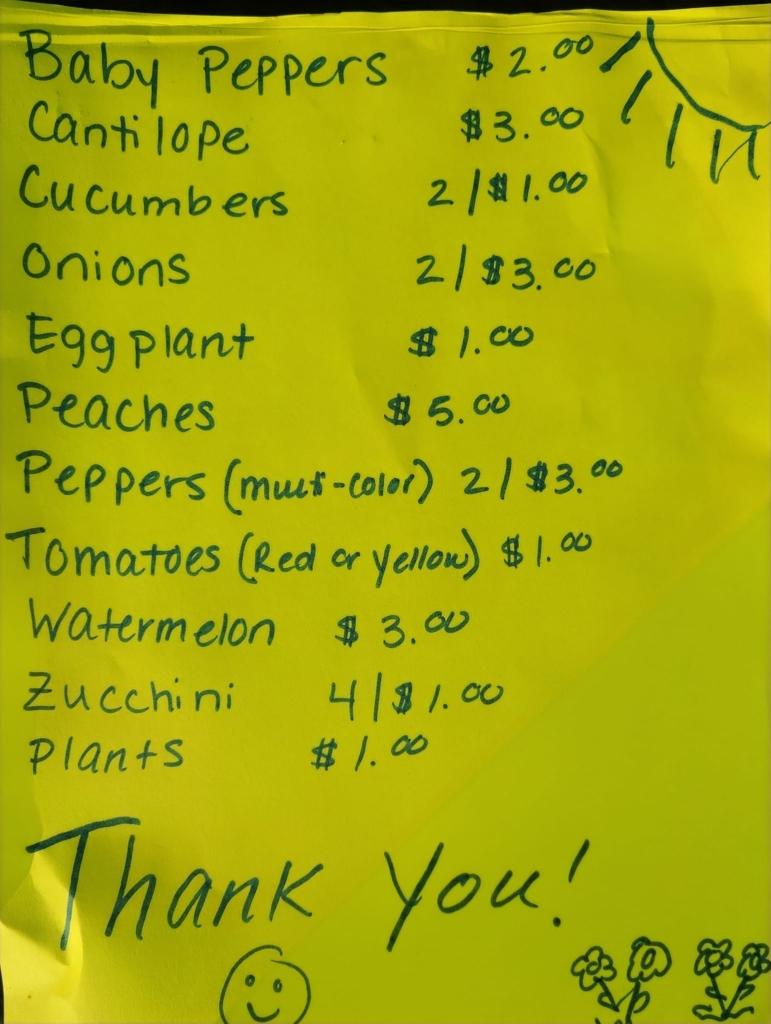 Baby Peppers $2.00
Cantilope $3.00
Cucumbers 2/$1.00
Onions 2/$3.00
Eggplant $1.00
Peaches $5.00
Peppers (multi-color) 2/$3.00
Tomatoes (Red or Yellow) $1.00
Watermelon $3.00
Zucchini 4/$1.00
Plants $1.00
Thank You!